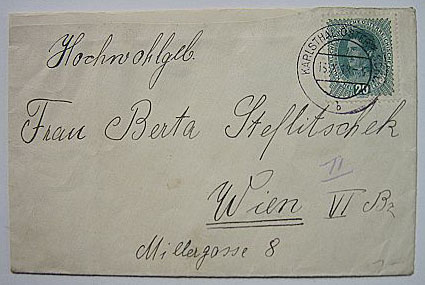 Hochwohlgeb.
KARLSTHAL
20
Frau Berta Steflitschek
II
Wien VI Bz
Millergasse 8